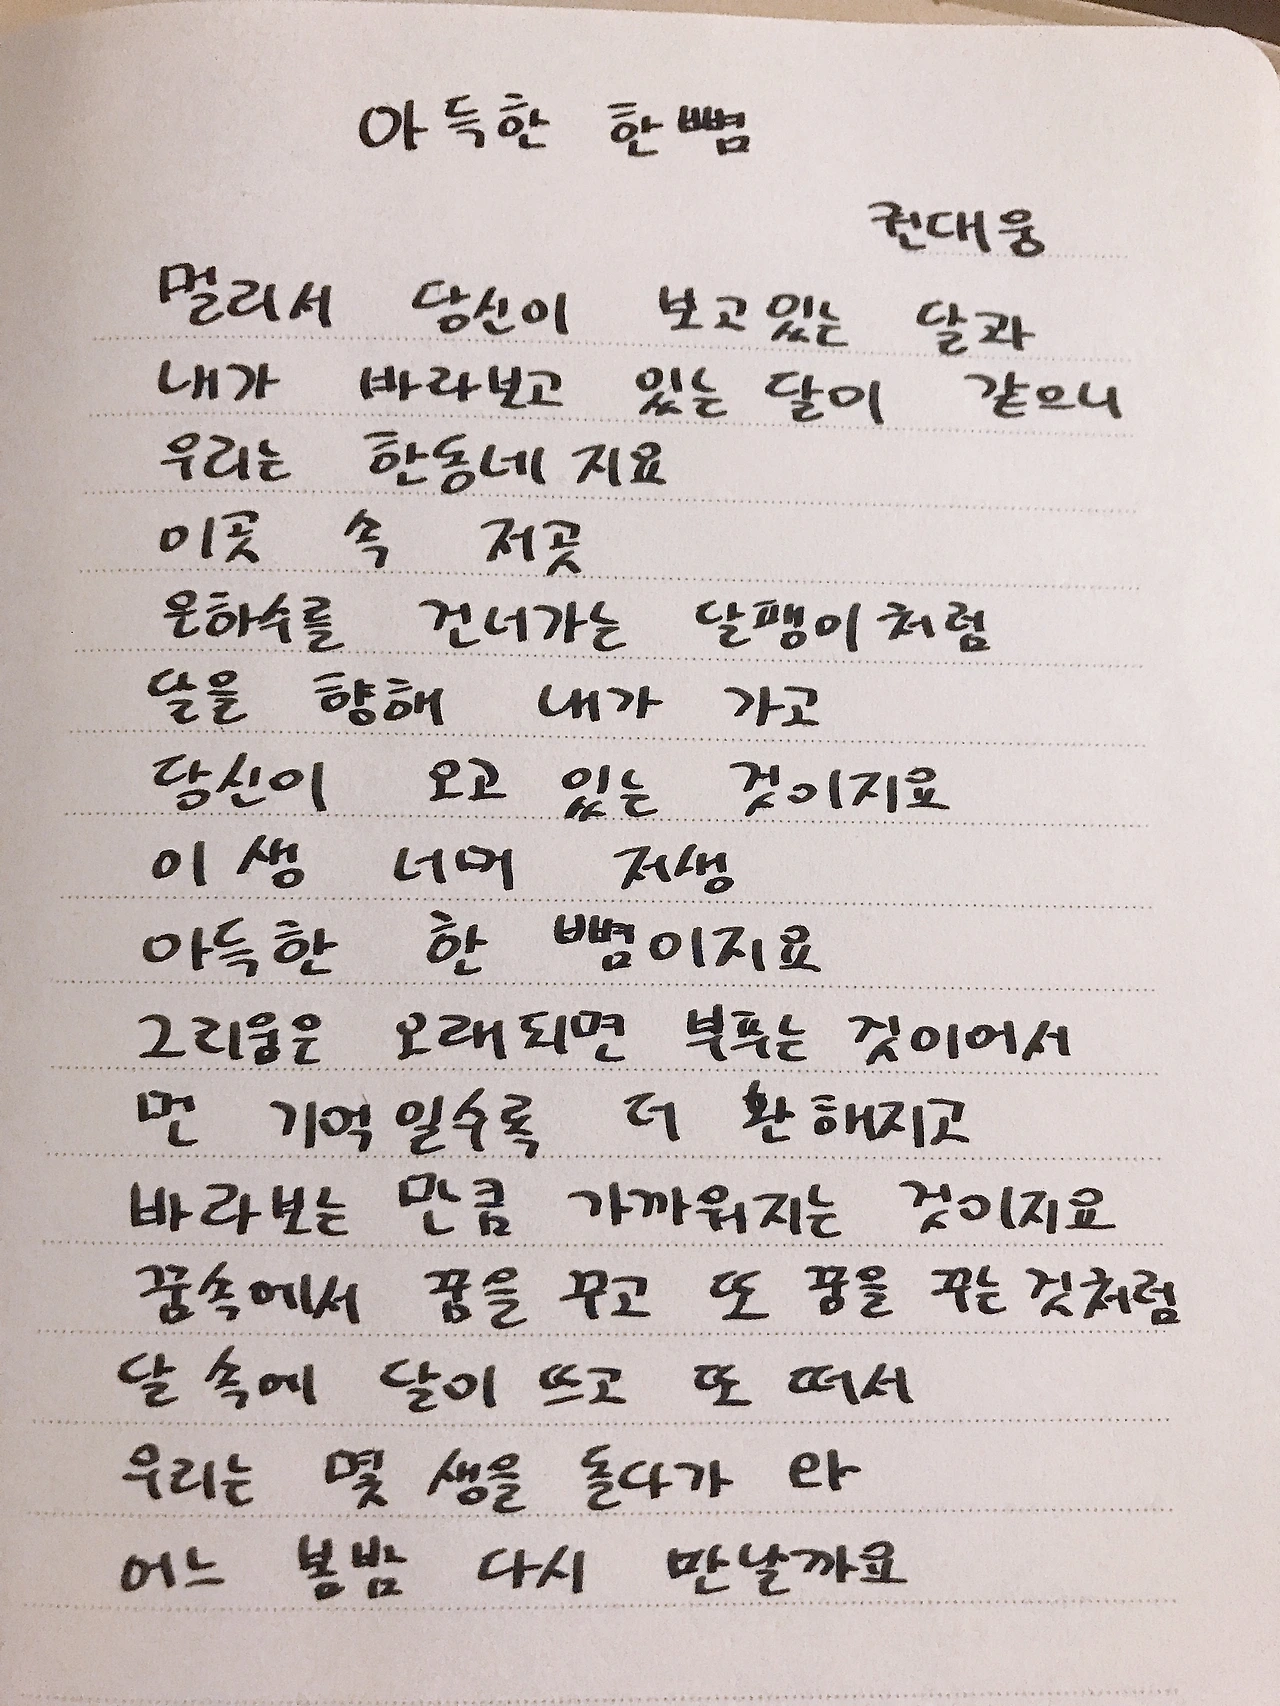 아득한 한뼘
권대웅
멀리서 당신이 보고있는 달과
내가 바라보고 있는 달이 같으니
우리는 한동네 지요
이곳 속 저곳
은하수를 건너가는 달팽이처럼
달을 향해 내가 가고
당신이 오고 있는 것이지요
이 생 너머 저생
아득한 한 뼘이지요
그리움은 오래되면 부푸는 것이어서
먼 기억 일수록 더 환해지고
바라보는 만큼 가까워지는 것이지요
꿈속에서 꿈을 꾸고 또 꿈을 꾸는 것처럼
달 속에 달이 뜨고 또 떠서
우리는 몇 생을 돌다가 와
어느 봄밤 다시 만날까요